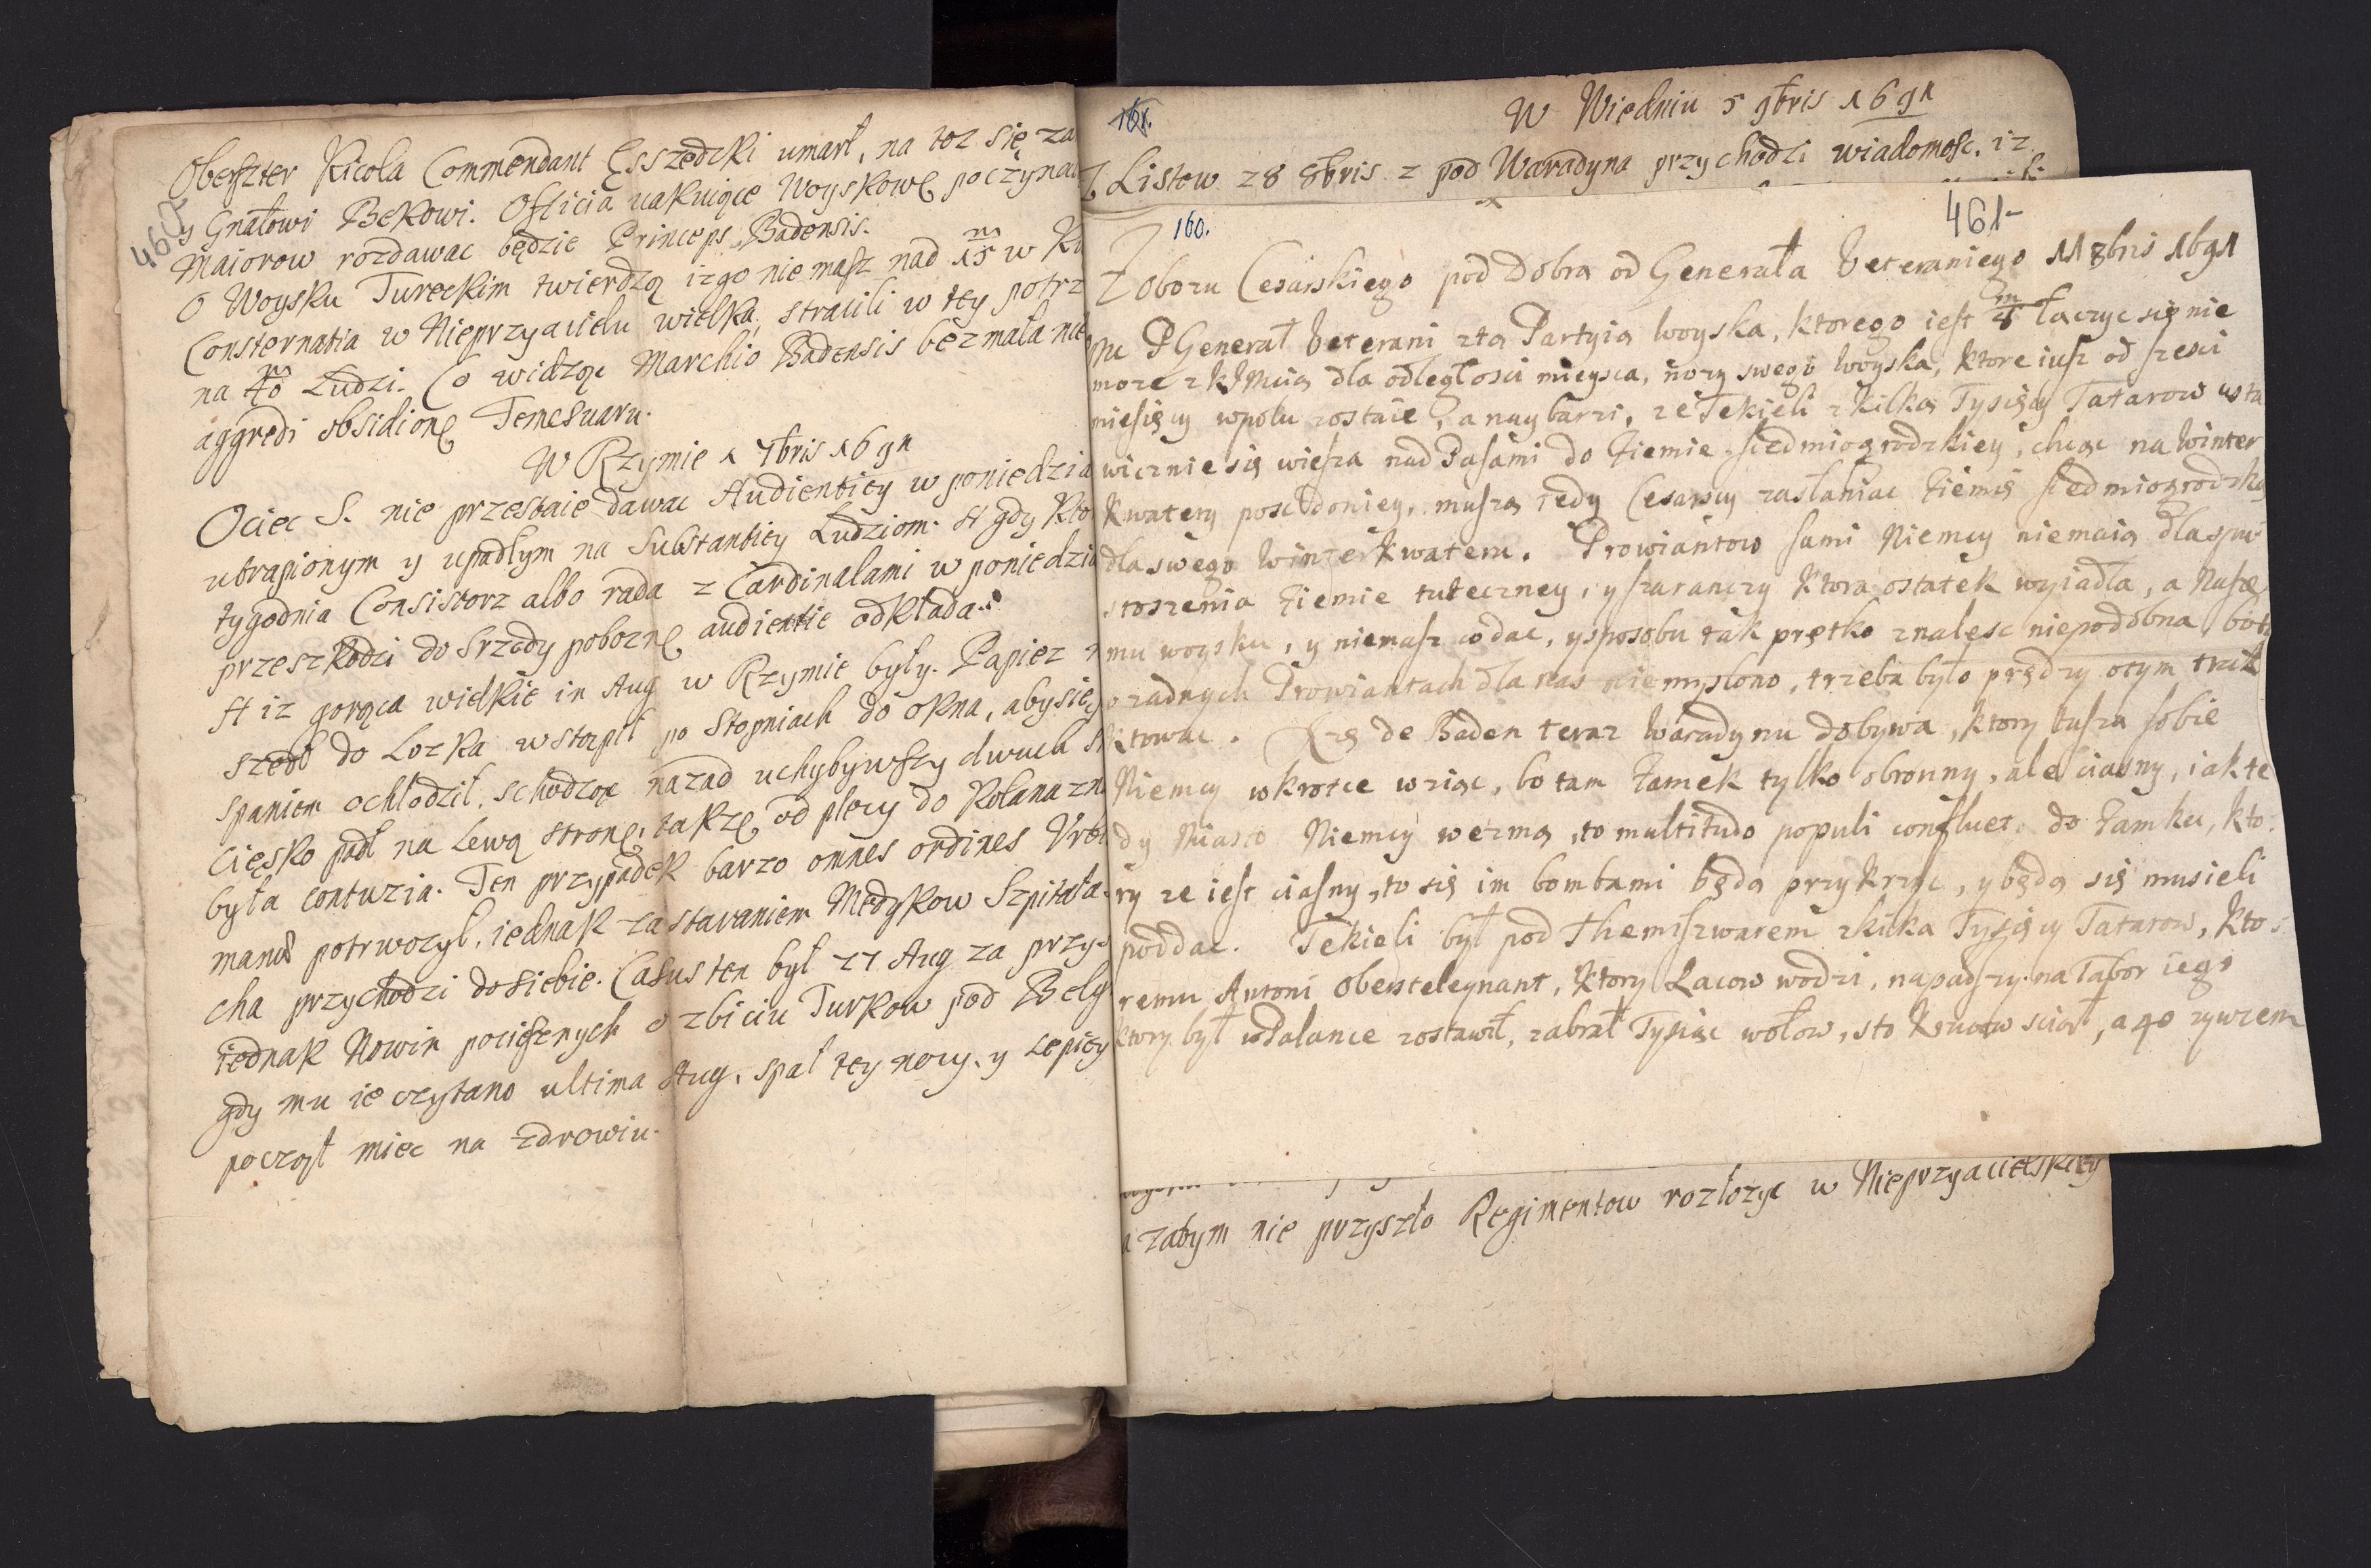 460
Oberszter Kicola Commendant Esszedzki umarł, na toz się za
y Gnałowi Bekowi. Officia vakuiące Woyskowe poczynaią
Maiorow rozdawac będzie Princeps Badensis.
O Woysku Tureckim twierdzą iz go nie masz nad 15 m w Ku
Consternatia w Nieprzyacielu wielka, stracili w tey potrz
na 40 m Ludzi. Co widząc Marchio Badensis bez mała nie
aggredi obsidionę Temesuaru.
W Rzymie 1 7bris 1691
Ociec S. nie przestaie dawac Audientiey w poniedzia
utrapionym y upadłym na Substantiey Ludziom. A gdy kto
tygodnia Consistorz albo rada z Cardinałami w poniedzia
przeszkodzi do Srzody poboznę audientie odkłada.
A iz gorąca wielkie in Aug w Rzymie były. Papiez
szedł do Lozka wstąpił po Stopniach do okna, aby się
spaniem ochłodził, schodząc nazad uchybywszy dwuch
ciesko padł na Lewą stronę, takze od plecy do kolana
była contuzia. Ten przypadek barzo omnes ordines Vrbi
manos potrwozył, iednak za staraniem Medykow Szpitala
cha przychodzi do siebie. Casus ten był 27 Aug za przy
iednak Nowin pociesznych o zbiciu Turkow pod Belg
gdy mu ie czytano ultima Aug. spał tey nocy, y Lepiey
począł miec na zdrowiu.
161.
W Wiedniu 5 9bris 1691
Z Listow 28 8bris z pod Waradyna przychodzi wiadomosc, iz
160.
461
Z obozu Cesarskiego pod Dobra od Generała Veteraniego 11 8bris 1691
JMc P General Veterani z tą Partyią woyska, ktorego iest 8 m łączyc się nie
moze z KJMcią dla odległosci mieysca, swego woyska, ktore iusz od szesci
miesięcy w polu zostaie, a naybarzi, ze Tekieli z kilką Tysięcy Tatarow usta
wicznie się wiesza nad Pasami do Ziemie siedmiogrodzkiey, chcąc na Winter
kwatery posc do niey, muszą tedy Cesarscy zasłaniac Ziemię siedmiogrodzką
dla swego Winterkwateru. Prowiantow sami Niemcy niemaią dla spu
stoszenia Ziemie tuteczney, y szaranczy ktora ostatek wyiadła, a Nasze
mu woysku, y niemasz co dac, y sposobu tak prętko znalesc niepodobna, bo
o zadnych Prowiantach dla nas niemyslono, trzeba było prędzy o tym trak
ktowac. Xzę de Baden teraz Waradynu dobywa, ktory tusza sobie
Niemcy wkrotce wziąc, bo tam Zamek tylko obronny, ale ciasny, iak te
dy Miasto Niemcy wezmą, to multitudo populi confluet do Zamku, kto
ry ze iest ciasny, to się im bombami będą przykrzyc, y będą się musieli
poddac. Tekieli był pod Themiszwarem z kilka Tysięcy Tatarow, kto
remu Antoni Obersteleynant, ktory Racow wodzi, napadszy na Tabor iego
ktory był w Palance zostawił, zabrał Tysiąc wołow, sto Kurucow sciął, a 40 zywcem
a zatym nie przyszło Regimentow rozłozyc w Nieprzyacielskiey